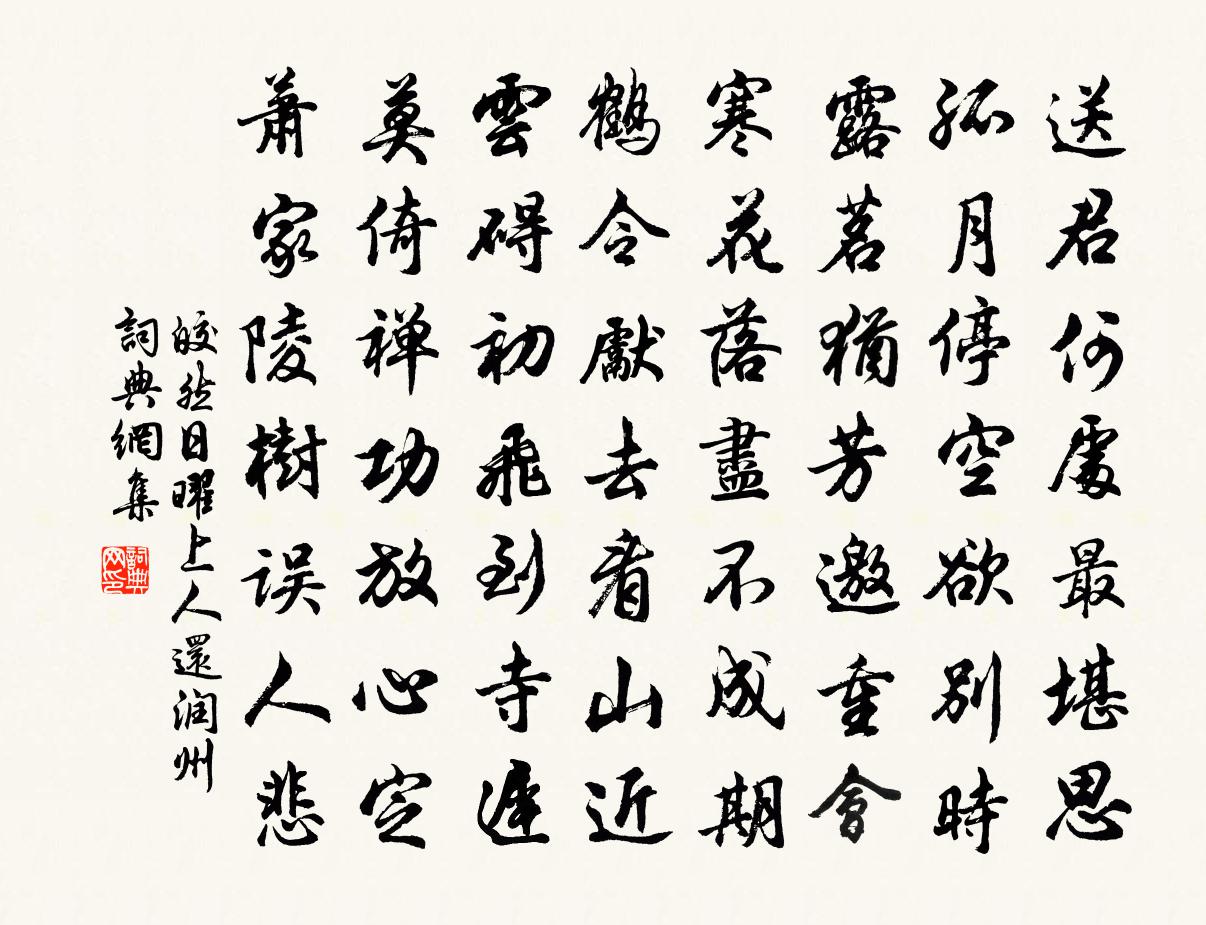 送君何處最堪思
孤月停空欲別時
露茗猶芳邀重會
寒花落盡不成期
鶴令獻去看山近
雲碍初飛到寺遲
莫倚禅功放心定
蕭家陵樹误人悲
皎然日曜上人還润州
詞典網集
詞典
网印